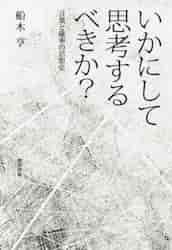 いかにして
思考する
べきか?
言葉と確率の思想史
船木 亨